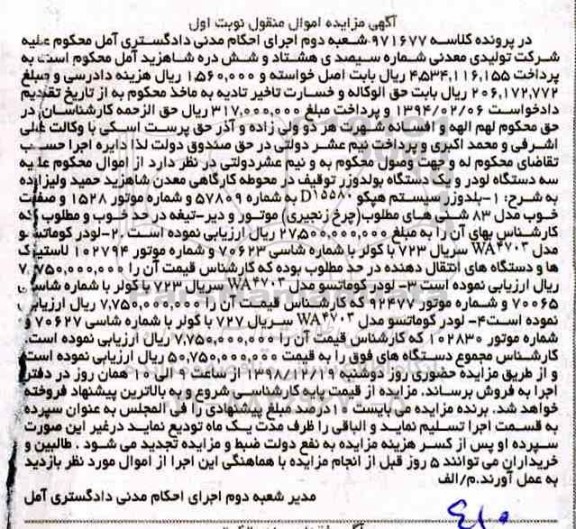 آگهی مزایده اموال منقول نوبت اول
در پرونده کلاسه ۹۷۱۶۷۷ شعبه دوم اجرای احکام مدنی دادگستری آمل محکوم علیه
شرکت تولیدی معدنی شماره سیصد ی هشتاد و شش دره شاهزید آمل محکوم است به
پرداخت ۴،۵۳۴،۱۱۶،۱۵۵ ریال بابت اصل خواسته و ۱۵۶۰،۰۰۰ ریال هزینه دادرسی و مبلغ
۲۰۶،۱۷۲،۷۷۲ ریال بابت حق الوکاله و خسارت تاخیر تادیه به ماخذ محکوم به از تاریخ تقدیم
دادخواست ۱۳۹۴/۰۲/۰۶ و پرداخت مبلغ ۳۱۷،۰۰۰،۰۰۰ ریال حق الزحمه کارشناسان، در
حق محکوم لهم الهه و افسانه شهرت هر دو ولی زاده و آذر حق پرست اسکی با وکالت علی
اشرفی و محمد اکبری و پرداخت نیم عشر دولتی در حق صندوق دولت لذا دایره اجرا حسب
تقاضای محکوم له و جهت وصول محکوم به و نیم عشردولتی در نظر دارد از اموال محکوم علیه
سه دستگاه لودر و یک دستگاه بولدوزر توقیف در محوطه کارگاهی معدن شاهزید حمید ولیزاده
به شرح: ۱-بلدوزر سیستم هپکو D۱۵۵۸۰ به شماره ۵۷۸۰۹ و شماره موتور ۱۵۲۸ و صفت
خوب مدل ۸۳ شنی های مطلوب(چرخ زنجیری) موتور و دیر-تیغه در حد خوب و مطلوب که
کارشناس بهای آن را به مبلغ ۲۷،۵۰۰،۰۰۰،۰۰۰ ریال ارزیابی نموده است .۲-لودر کوماتسو
مدل WA۴۷۰۳ سریال ۷۲۳ با کولر با شماره شاسی ۷۰۶۲۳ و شماره موتور ۱۰۲۷۹۴ لاستیک
ها و دستگاه های انتقال دهنده در حد مطلوب بوده که کارشناس قیمت آن را ۷،۷۵۰،۰۰۰،۰۰۰
ریال ارزیابی نموده است ۳- لودر کوماتسو مدل WA۴۷۰۳ سریال ۷۲۳ با کولر با شماره شاسی
۷۰۰۶۵ و شماره موتور ۲۲۴۷۷ که کارشناس قیمت آن را ۷،۷۵۰،۰۰۰،۰۰۰ ریال ارزیابی
نموده است۴- لودر کوماتسو مدل WA۴۷۰۳ سریال ۷۲۷ با کولر با شماره شاسی ۷۰۶۲۷ و
شماره موتور ۱۰۲۸۳۰ که کارشناس قیمت آن را ۷،۷۵۰،۰۰۰،۰۰۰ ریال ارزیابی نموده است.
کارشناس مجموع دستگاه های فوق را به قیمت ۵۰،۷۵۰،۰۰۰،۰۰۰ ریال ارزیابی نموده است
و از طریق مزایده حضوری روز دوشنبه ۱۳۹۸/۱۲/۱۹ از ساعت ۹ الی ۱۰ همان روز در دفتر
اجرا به فروش برساند. مزایده از قیمت پایه کارشناسی شروع و به بالاترین پیشنهاد فروخته
خواهد شد. برنده مزایده می بایست ۱۰درصد مبلغ پیشنهادی را فی المجلس به عنوان سپرده
به قسمت اجرا تسلیم نماید و الباقی را ظرف مدت یک ماه تودیع نماید درغیر این صورت
سپرده او پس از کسر هزینه مزایده به نفع دولت ضبط و مزایده تجدید می شود . طالبین و
خریداران می توانند ۵ روز قبل از انجام مزایده با هماهنگی این اجرا از اموال مورد نظر بازدید
به عمل آورند.م/الف
مدیر شعبه دوم اجرای احکام مدنی دادگستری آمل